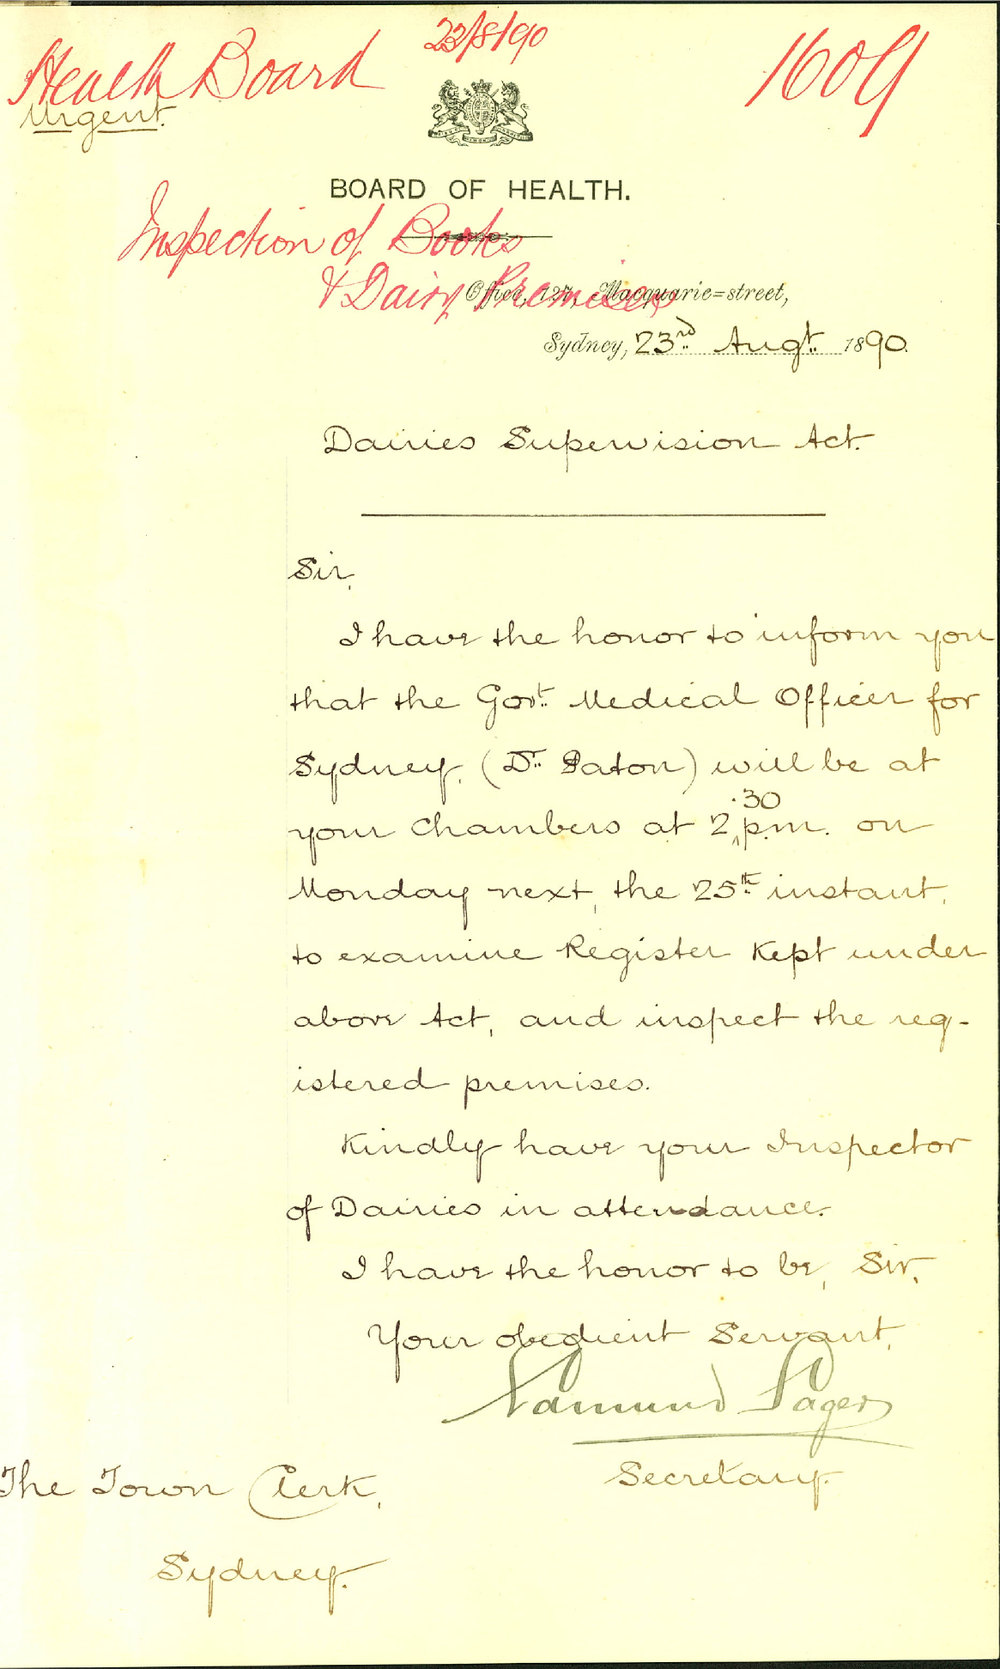 Health Board
23/8/90
1609
Urgent.
BOARD OF HEALTH.
Inspection of Books
& Dairy Premises
Office, 127, Macquarie=street,
Sydney, 23rd Augt. 1890.
Dairies Supervision Act.
Sir,
I have the honor to inform you
that the Govt. Medical Officer for
Sydney, (Dr. Paton) will be at
your Chambers at 2.30 p.m. on
Monday next, the 25th instant,
to examine Register kept under
above Act, and inspect the reg-
istered premises.
Kindly have your Inspector
of Dairies in attendance.
I have the honor to be, Sir,
Your obedient Servant,
Edmund Sager
Secretary.
The Town Clerk,
Sydney.